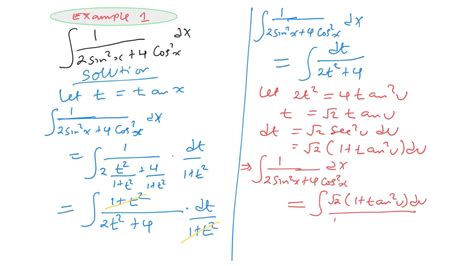 Example 1
∫ 1/(2sin²x + 4Cos²x) dx
Solution
Let t = tan x
∫ 1/(2sin²x + 4Cos²x) dx
= ∫ 1/(2 t²/(1+t²) + 4/(1+t²)) · dt/(1+t²)
= ∫ (1+t²)/(2t² + 4) · dt/(1+t²)
∫ 1/(2sin²x + 4Cos²x) dx
= ∫ dt/(2t² + 4)
Let 2t² = 4tan²υ
t = √2 tanυ
dt = √2 sec²υ dυ
= √2 (1+tan²υ)dυ
⇒ ∫ 1/(2sin²x + 4Cos²x) dx
= ∫ √2 (1+tan²υ)dυ